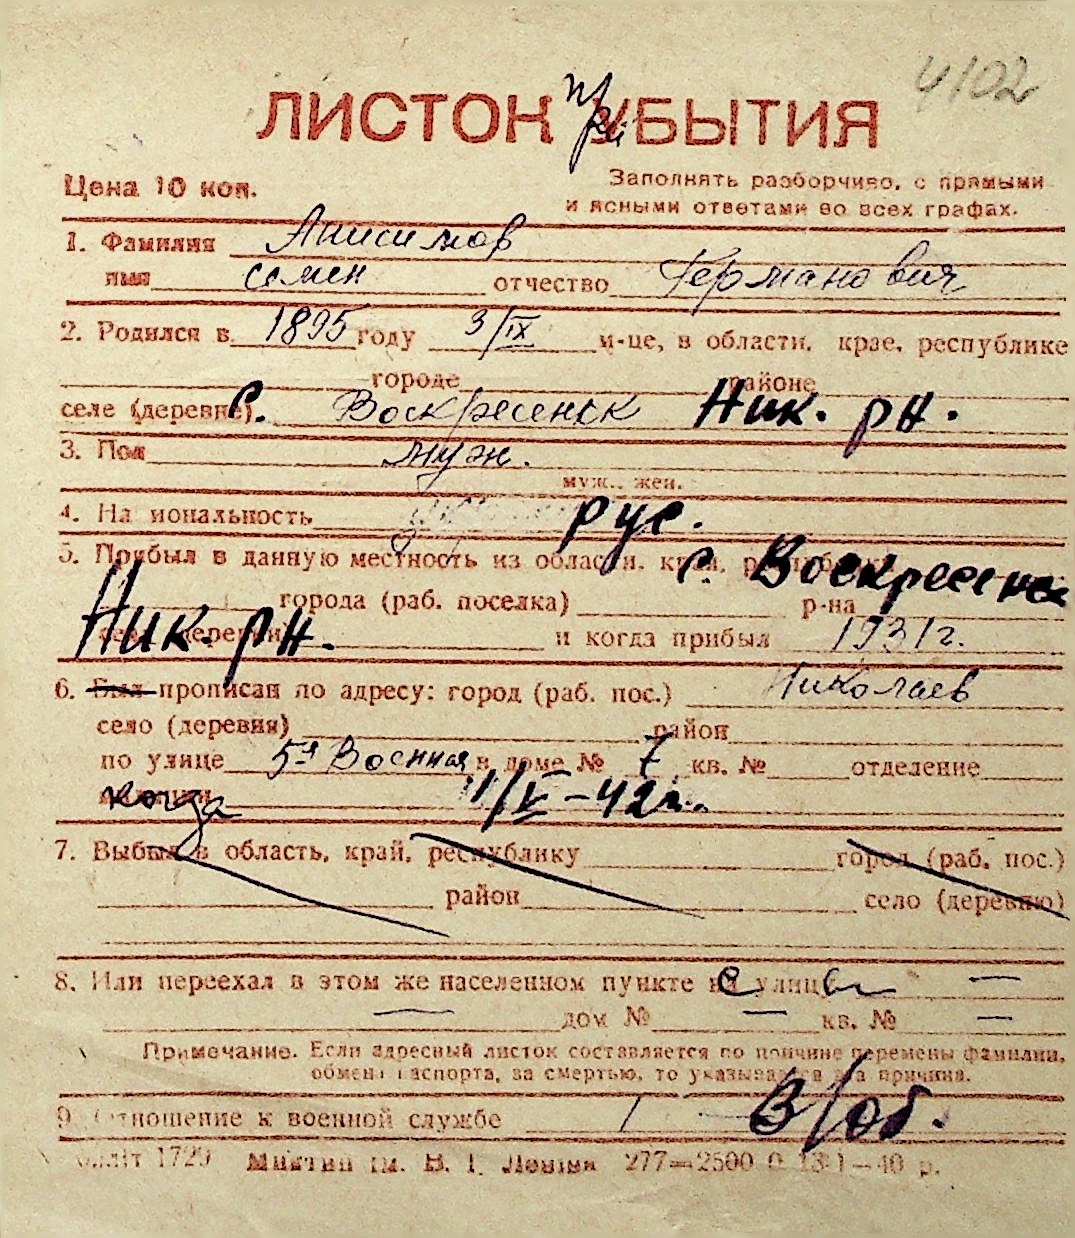 4102
ЛИСТОК УБЫТИЯ
при
Цена 10 коп.
Заполнять разборчиво, с прямыми
и ясными ответами во всех графах.
1. Фамилия Анисимов
имя семен отчество Германович
2. Родился в 1895 году 3/IX м-це, в области, крае, республике
городе районе
селе (деревне) с. Воскресенск Ник. рн.
3. Пол муж.
муж., жен.
4. На иональность рус.
5. Прибыл в данную местность из области, края, с. Воскресенск
города (раб. поселка) р-на
Ник. рн. и когда прибыл 1931 г.
6. Был прописан по адресу: город (раб. пос.) Николаев
село (деревня) район
по улице 5я Военная в доме № 7 кв. № отделение
когда 11/V-42г.
7. Выбыл в область, край, республику город (раб. пос.)
район село (деревню)
8. Или переехал в этом же населенном пункте с улицы —
— дом № — кв. № —
Примечание. Если адресный листок составляется по причине перемены фамилии,
обмена паспорта, за смертью, то указывается эта причина.
9. Отношение к военной службе В/об.
1729 им. В. І. Леніна 277—2500 40 р.